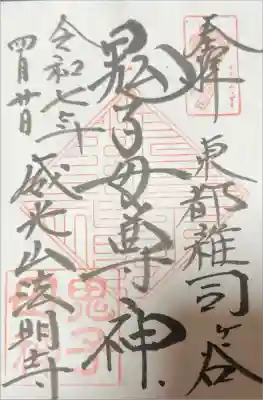 奉拝
東都雑司ヶ谷
鬼子母尊神
令和七年
四月廿日
威光山法明寺